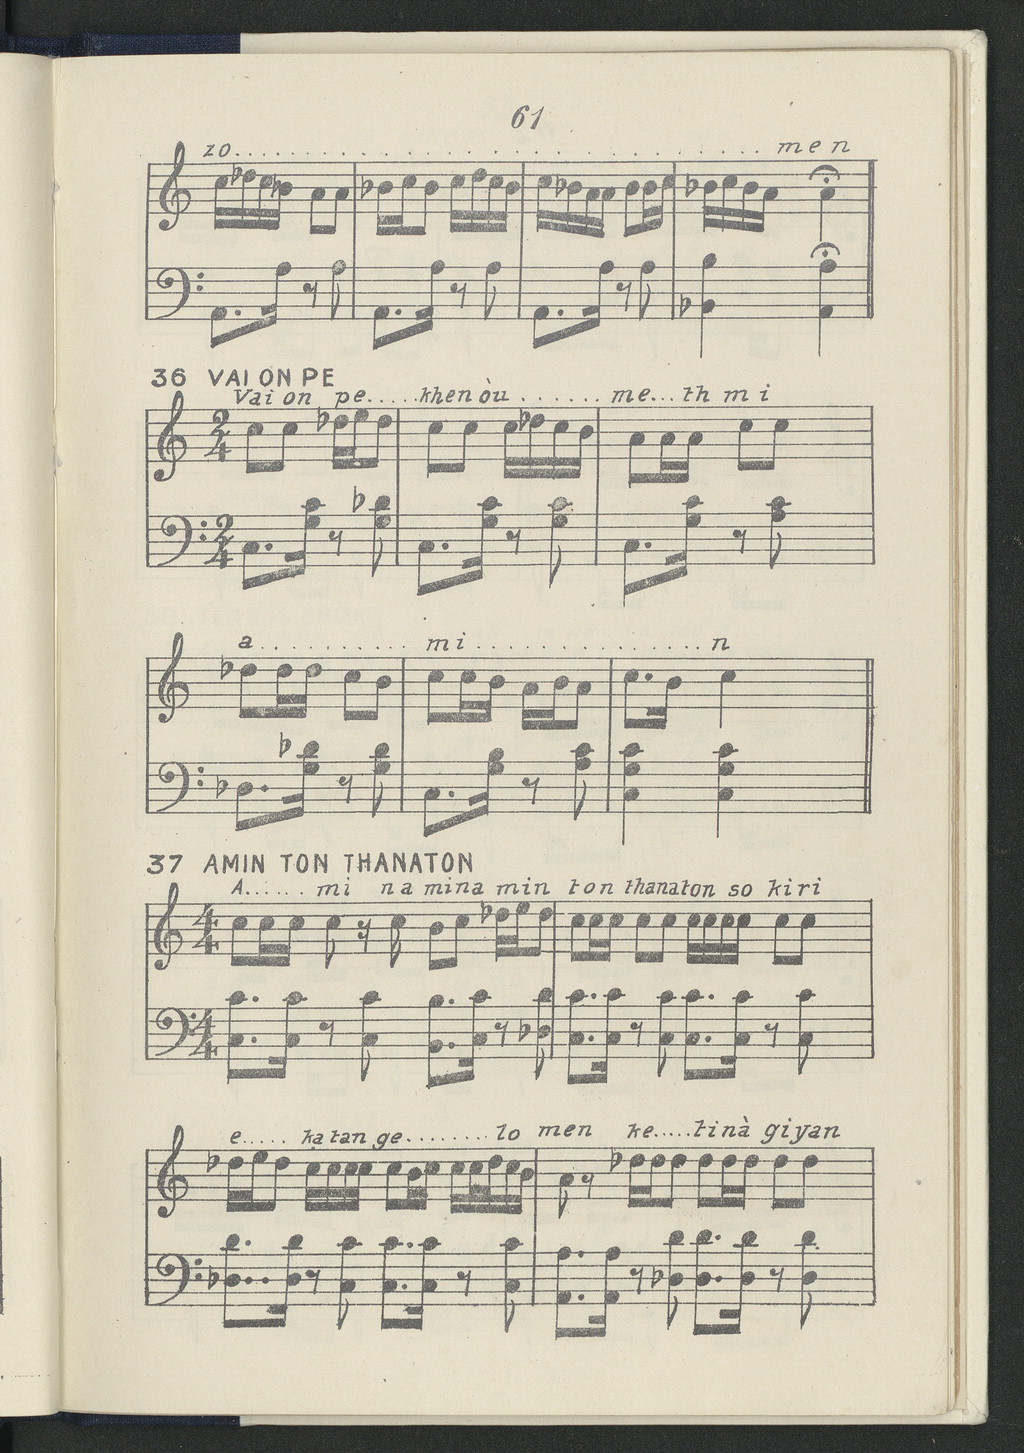 61
zo. . . . . . . . . . . . . . . . . . . . . . . . . . men
36 VAI ON PE
Vai on pe.....khenòu.......me...th mi
2 4
2 4
a..........mi..............n
37 AMIN TON THANATON
A...... mi na mina min ton thanaton so kiri
4 4
4 4
e..... ka tan ge........ lo men ke.....tinà giyan